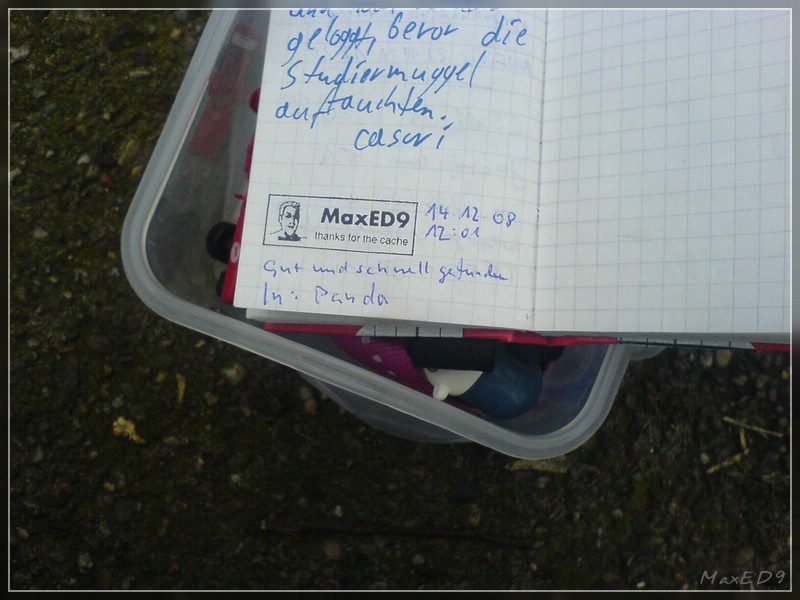 geloggt, bevor die
Studiermuggel
auftauchten.
casuri
MaxED9
thanks for the cache
14.12.08
12:01
Gut und schnell gefunden
In: Panda
MaxED9